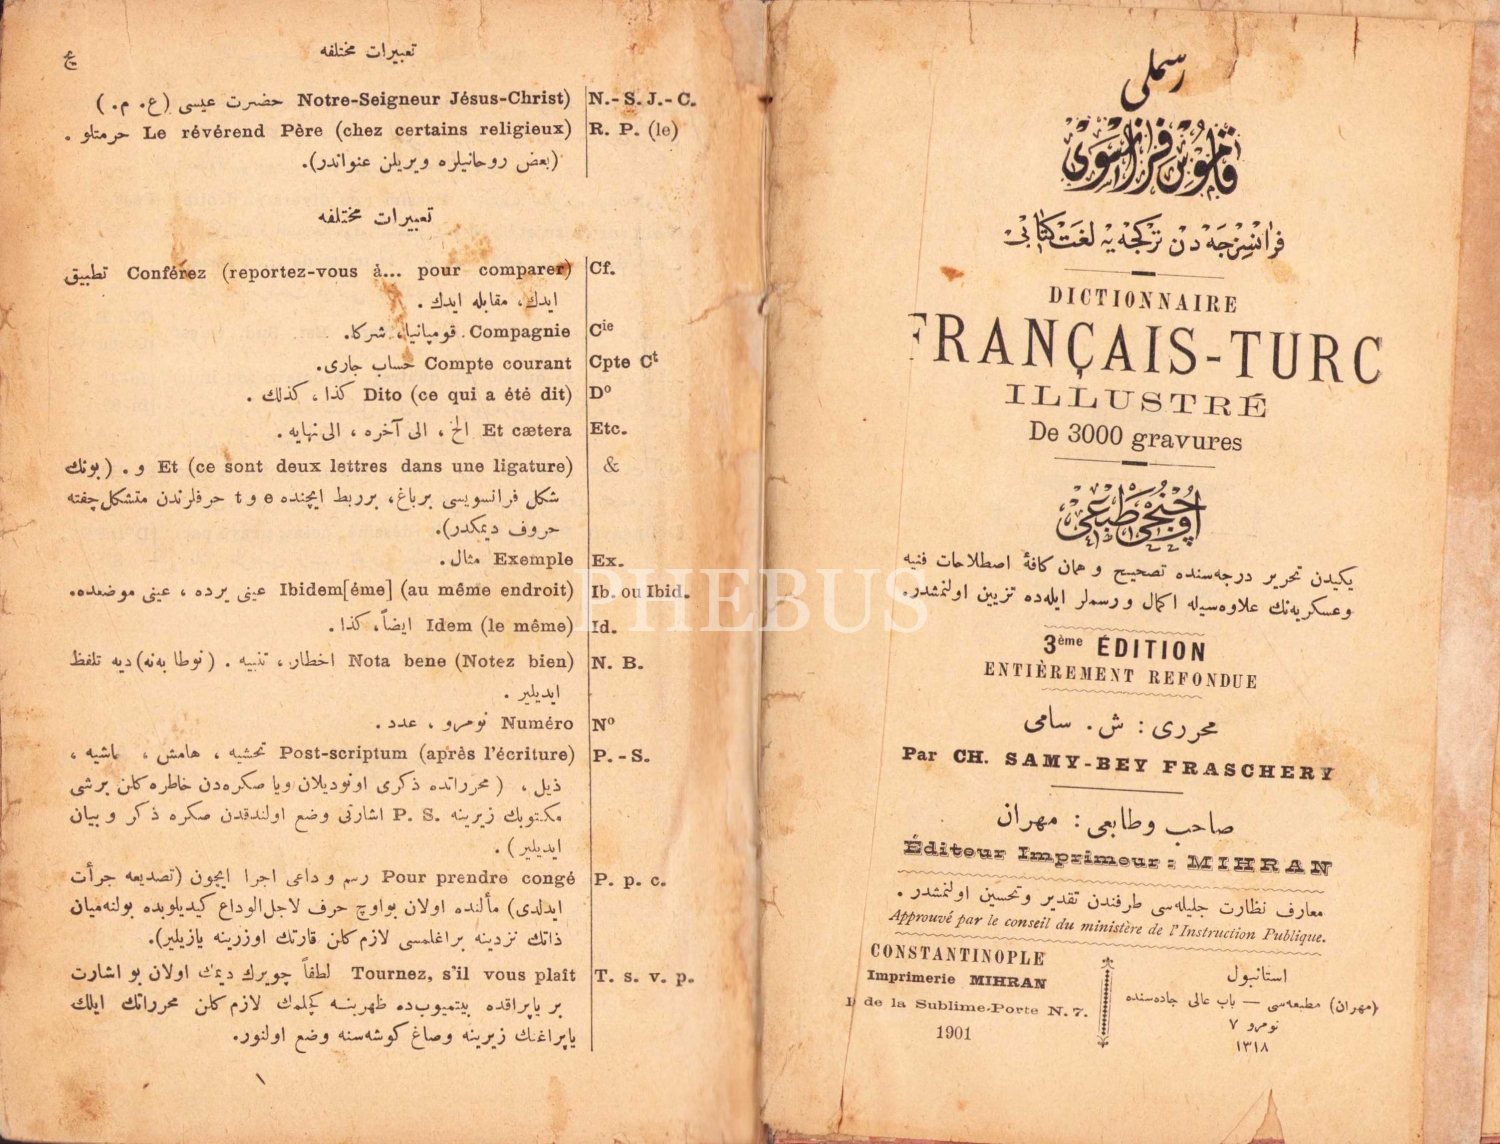 تعبيرات مختلفه
N.- S. J.- C. (Notre-Seigneur Jésus-Christ حضرت عيسى (ع. م.)
R. P. (le) Le révérend Père (chez certains religieux) حرمتلو .
(بعض روحانيلره ويريلن عنواندر).
تعبيرات مختلفه
Cf. Conférez (reportez-vous à... pour comparer) تطبيق
ايدك، مقابله ايدك .
Cie Compagnie قومپانيا، شركا.
Cpte Ct Compte courant حساب جارى.
Do Dito (ce qui a été dit) كذا ، كذلك .
Etc. Et cætera الخ ، الى آخره ، الى نهايه .
& Et (ce sont deux lettres dans une ligature) و . (بونك
شكل فرانسويسى برباغ، برربط ايچنده e و t حرفلرندن متشكل چفته
حروف ديمكدر).
Ex. Exemple مثال.
Ib. ou Ibid. Ibidem[éme] (au même endroit) عينى يرده ، عينى موضعده.
Id. Idem (le même) ايضاً، كذا.
N. B. Nota bene (Notez bien) اخطار، تنبيه . (نوطا بەنه) ديه تلفظ
ايديلير .
No Numéro نومرو ، عدد .
P. - S. Post-scriptum (après l'écriture) تحشيه ، هامش ،
ذيل ، (محرراتده ذكرى اونوديلان ويا صكره‌دن خاطره كلن برشى
مكتوبك زيرينه P. S. اشارتى وضع اولندقدن صكره ذكر و بيان
ايديلير) .
P. p. c. Pour prendre congé رسم وداعى اجرا ايچون (تصديعه جرأت
ايدلدى) مألنده اولان بواوچ حرف لاجل الوداع كيديلوبده بولنه‌ميان
ذاتك نزدينه براغلمسى لازم كلن قارتك اوزرينه يازيلير).
T. s. v. p. Tournez, s'il vous plaît لطفاً چويرك ديمك اولان بو اشارت
بر ياپراقده بيتميوب‌ده ظهرينه كچلمك لازم كلن محرراتك ايلك
ياپراغنك زيرينه وصاغ كوشه‌سنه وضع اولنور.
رسملى
قاموس فرانسوى
فرانسزجه‌دن تركجه‌يه لغت كتابى
DICTIONNAIRE
FRANÇAIS-TURC
ILLUSTRÉ
De 3000 gravures
اوچنجى طبعى
يكيدن تحرير درجه‌سنده تصحيح و همان كافۀ اصطلاحات فنيه
وعسكريه‌نك علاوه‌سيله اكمال و رسملر ايله‌ده تزيين اولنمشدر.
3ème ÉDITION
ENTIÈREMENT REFONDUE
محررى : ش. سامى
Par CH. SAMY-BEY FRASCHERY
صاحب وطابعى : مهران
Éditeur Imprimeur : MIHRAN
معارف نظارت جليله‌سى طرفندن تقدير وتحسين اولنمشدر .
Approuvé par le conseil du ministère de l'Instruction Publique.
CONSTANTINOPLE
Imprimerie MIHRAN
de la Sublime-Porte N. 7.
1901
استانبول
(مهران) مطبعه‌سى — باب عالى جاده‌سنده
نومرو ٧
١٣١٨
PHEBUS